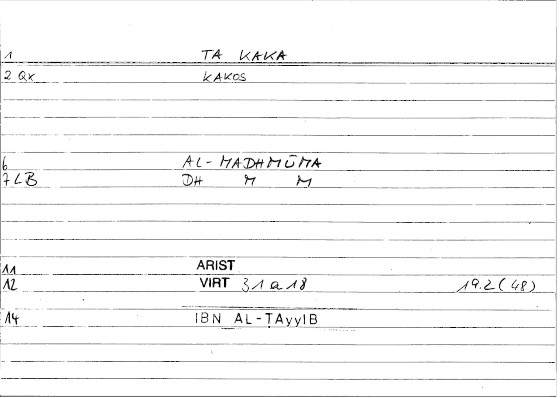 1 TA KAKA
2 Qx KAKOS
6 AL-MADHMŪMA
7 LB DH M M
11 ARIST
12 VIRT 31a18 19.2(48)
14 IBN AL-ṬAyyIB